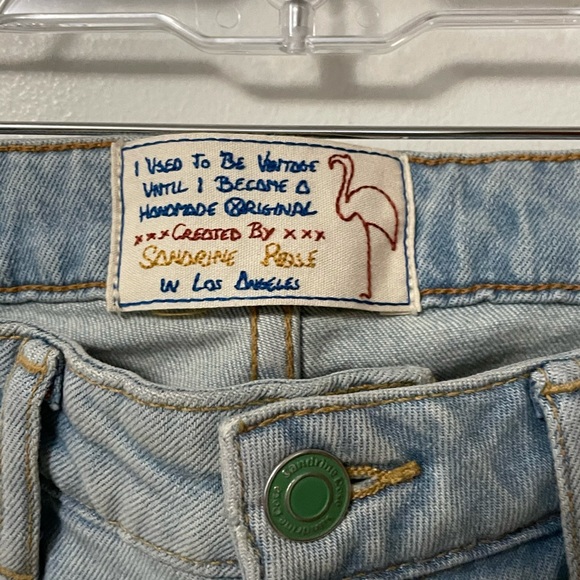 I Used To Be Vintage
Until I Became A
Handmade Original
xxx Created By xxx
Sandrine Rose
in Los Angeles
Sandrine Rose